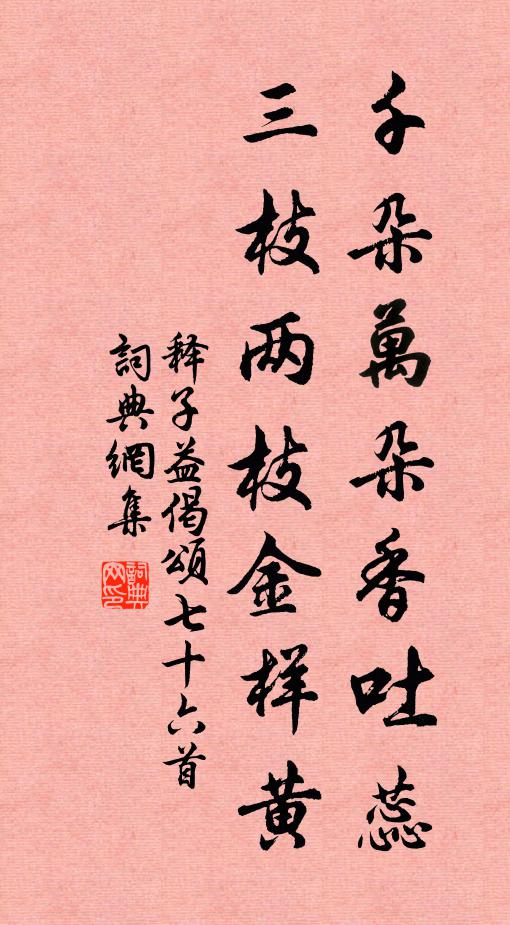 千朵萬朵香吐蕊
三枝两枝金样黄
释子益偈頌七十六首
詞典網集
詞典网印